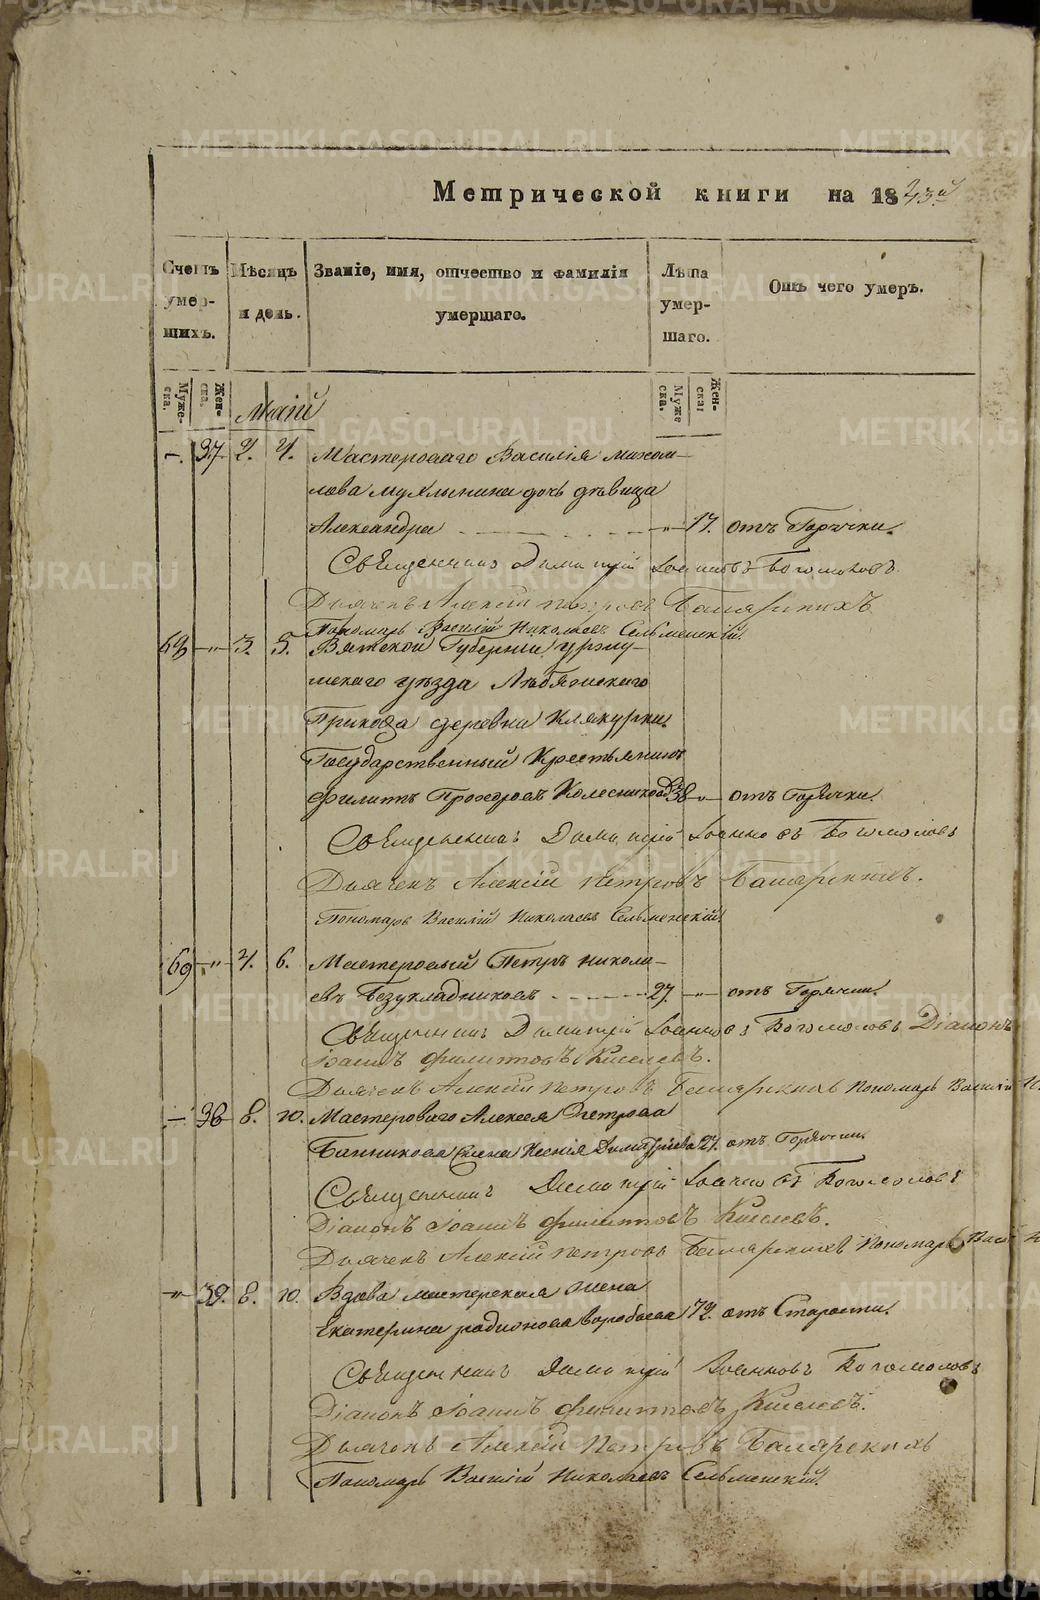 Метрической книги на 1843й
Счетъ умершихъ.
Мѣсяцъ и день.
Званіе, имя, отчество и фамилія умершаго.
Лѣта умершаго.
Отъ чего умеръ.
Мужеска. Женска. Мужеска. Женска:
Маій
37 2. 4. Мастероваго Василія Михай-
лова дочь дѣвица
Александра 17. отъ Горячки.
Священникъ Димитрій Іоанновъ Богомоловъ
Дьячекъ Алексій Петровъ
Пономарь Василій Николаевъ Сельменскій
68 3. 5. Вятской Губерніи Уржу-
мскаго уѣзда Лебяжскаго
Прихода деревни
Государственный Крестьянинъ
Филиппъ Прохоровъ Колесниковъ 38 отъ Горячки.
Священникъ Димитрій Іоанновъ Богомоловъ
Дьячекъ Алексій Петровъ
Пономарь Василій Николаевъ Сельменскій
69 4. 6. Мастеровый Петръ Никола-
евъ Безукладниковъ 27. отъ Горячки.
Священникъ Димитрій Іоанновъ Богомоловъ Діаконъ
Іоаннъ Филипповъ Киселевъ.
Дьячекъ Алексій Петровъ Пономарь Василій
38 8. 10. Мастероваго Алексея Петрова
Банникова жена Ксенія Димитріева 27. отъ Горячки.
Священникъ Димитрій Іоанновъ Богомоловъ
Діаконъ Іоаннъ Филипповъ Киселевъ.
Дьячекъ Алексій Петровъ Пономарь
39. 8. 10. Вдова мастерская жена
Екатерина Родионова Воробьева 72. отъ Старости.
Священникъ Димитрій Іоанновъ Богомоловъ
Діаконъ Іоаннъ Филипповъ Киселевъ.
Дьячекъ Алексій Петровъ
Пономарь Василій Николаевъ Сельменскій.
METRIKI.GASO-URAL.RU